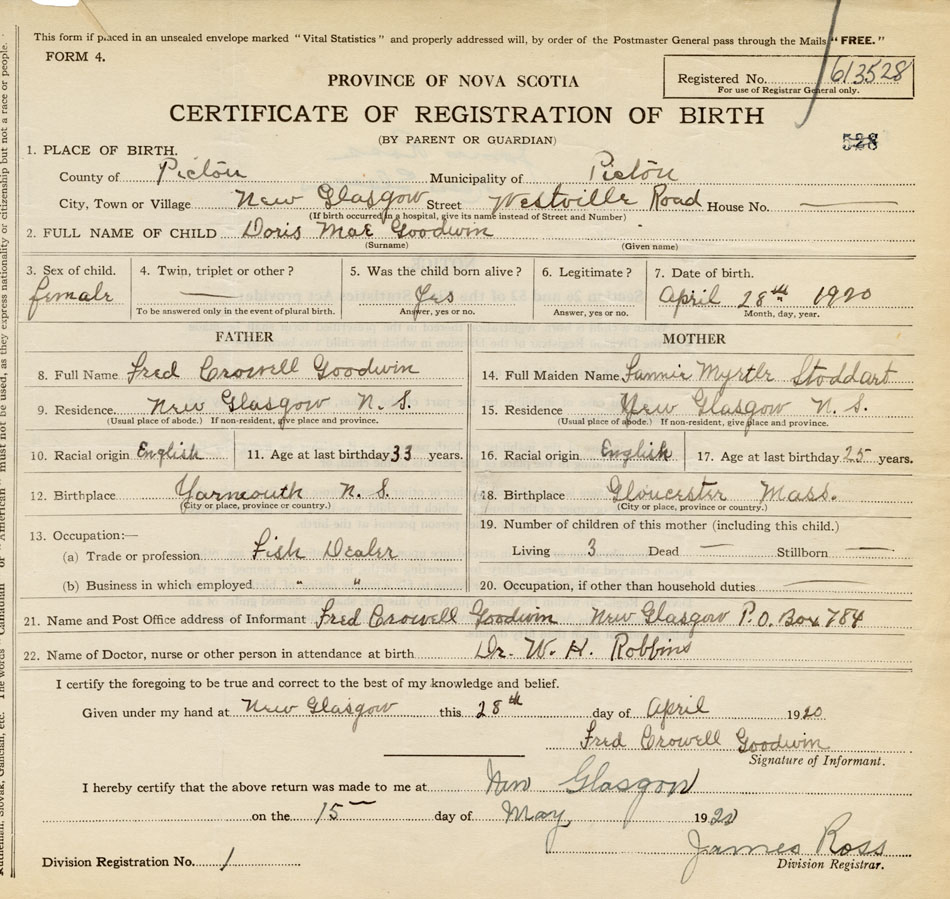 This form if placed in an unsealed envelope marked "Vital Statistics" and properly addressed will, by order of the Postmaster General pass through the Mails "FREE."
FORM 4.
Registered No. 613528
For use of Registrar General only.
PROVINCE OF NOVA SCOTIA
CERTIFICATE OF REGISTRATION OF BIRTH
(BY PARENT OR GUARDIAN)
528
1. PLACE OF BIRTH.
County of Pictou Municipality of Pictou
City, Town or Village New Glasgow Street Westville Road House No. —
(If birth occurred in a hospital, give its name instead of Street and Number)
2. FULL NAME OF CHILD Doris Mae Goodwin
(Surname) (Given name)
3. Sex of child. 4. Twin, triplet or other? 5. Was the child born alive? 6. Legitimate? 7. Date of birth.
female — Yes April 28th 1920
To be answered only in the event of plural birth. Answer, yes or no. Answer, yes or no. Month, day, year.
FATHER MOTHER
8. Full Name Fred Crowell Goodwin 14. Full Maiden Name Fannie Myrtle Stoddart
9. Residence. New Glasgow N. S. 15. Residence New Glasgow N. S.
(Usual place of abode.) If non-resident, give place and province. (Usual place of abode.) If non-resident, give place and province.
10. Racial origin English 11. Age at last birthday 33 years. 16. Racial origin English 17. Age at last birthday 25 years.
12. Birthplace Yarmouth N. S. 18. Birthplace Gloucester Mass.
(City or place, province or country.) (City or place, province or country.)
13. Occupation:— 19. Number of children of this mother (including this child.)
(a) Trade or profession Fish Dealer Living 3 Dead — Stillborn —
(b) Business in which employed " " 20. Occupation, if other than household duties —
21. Name and Post Office address of Informant Fred Crowell Goodwin New Glasgow P.O. Box 784
22. Name of Doctor, nurse or other person in attendance at birth Dr. W. H. Robbins
I certify the foregoing to be true and correct to the best of my knowledge and belief.
Given under my hand at New Glasgow this 28th day of April 1920
Fred Crowell Goodwin
Signature of Informant.
I hereby certify that the above return was made to me at New Glasgow
on the 15 day of May 1920
James Ross
Division Registrar.
Division Registration No. 1